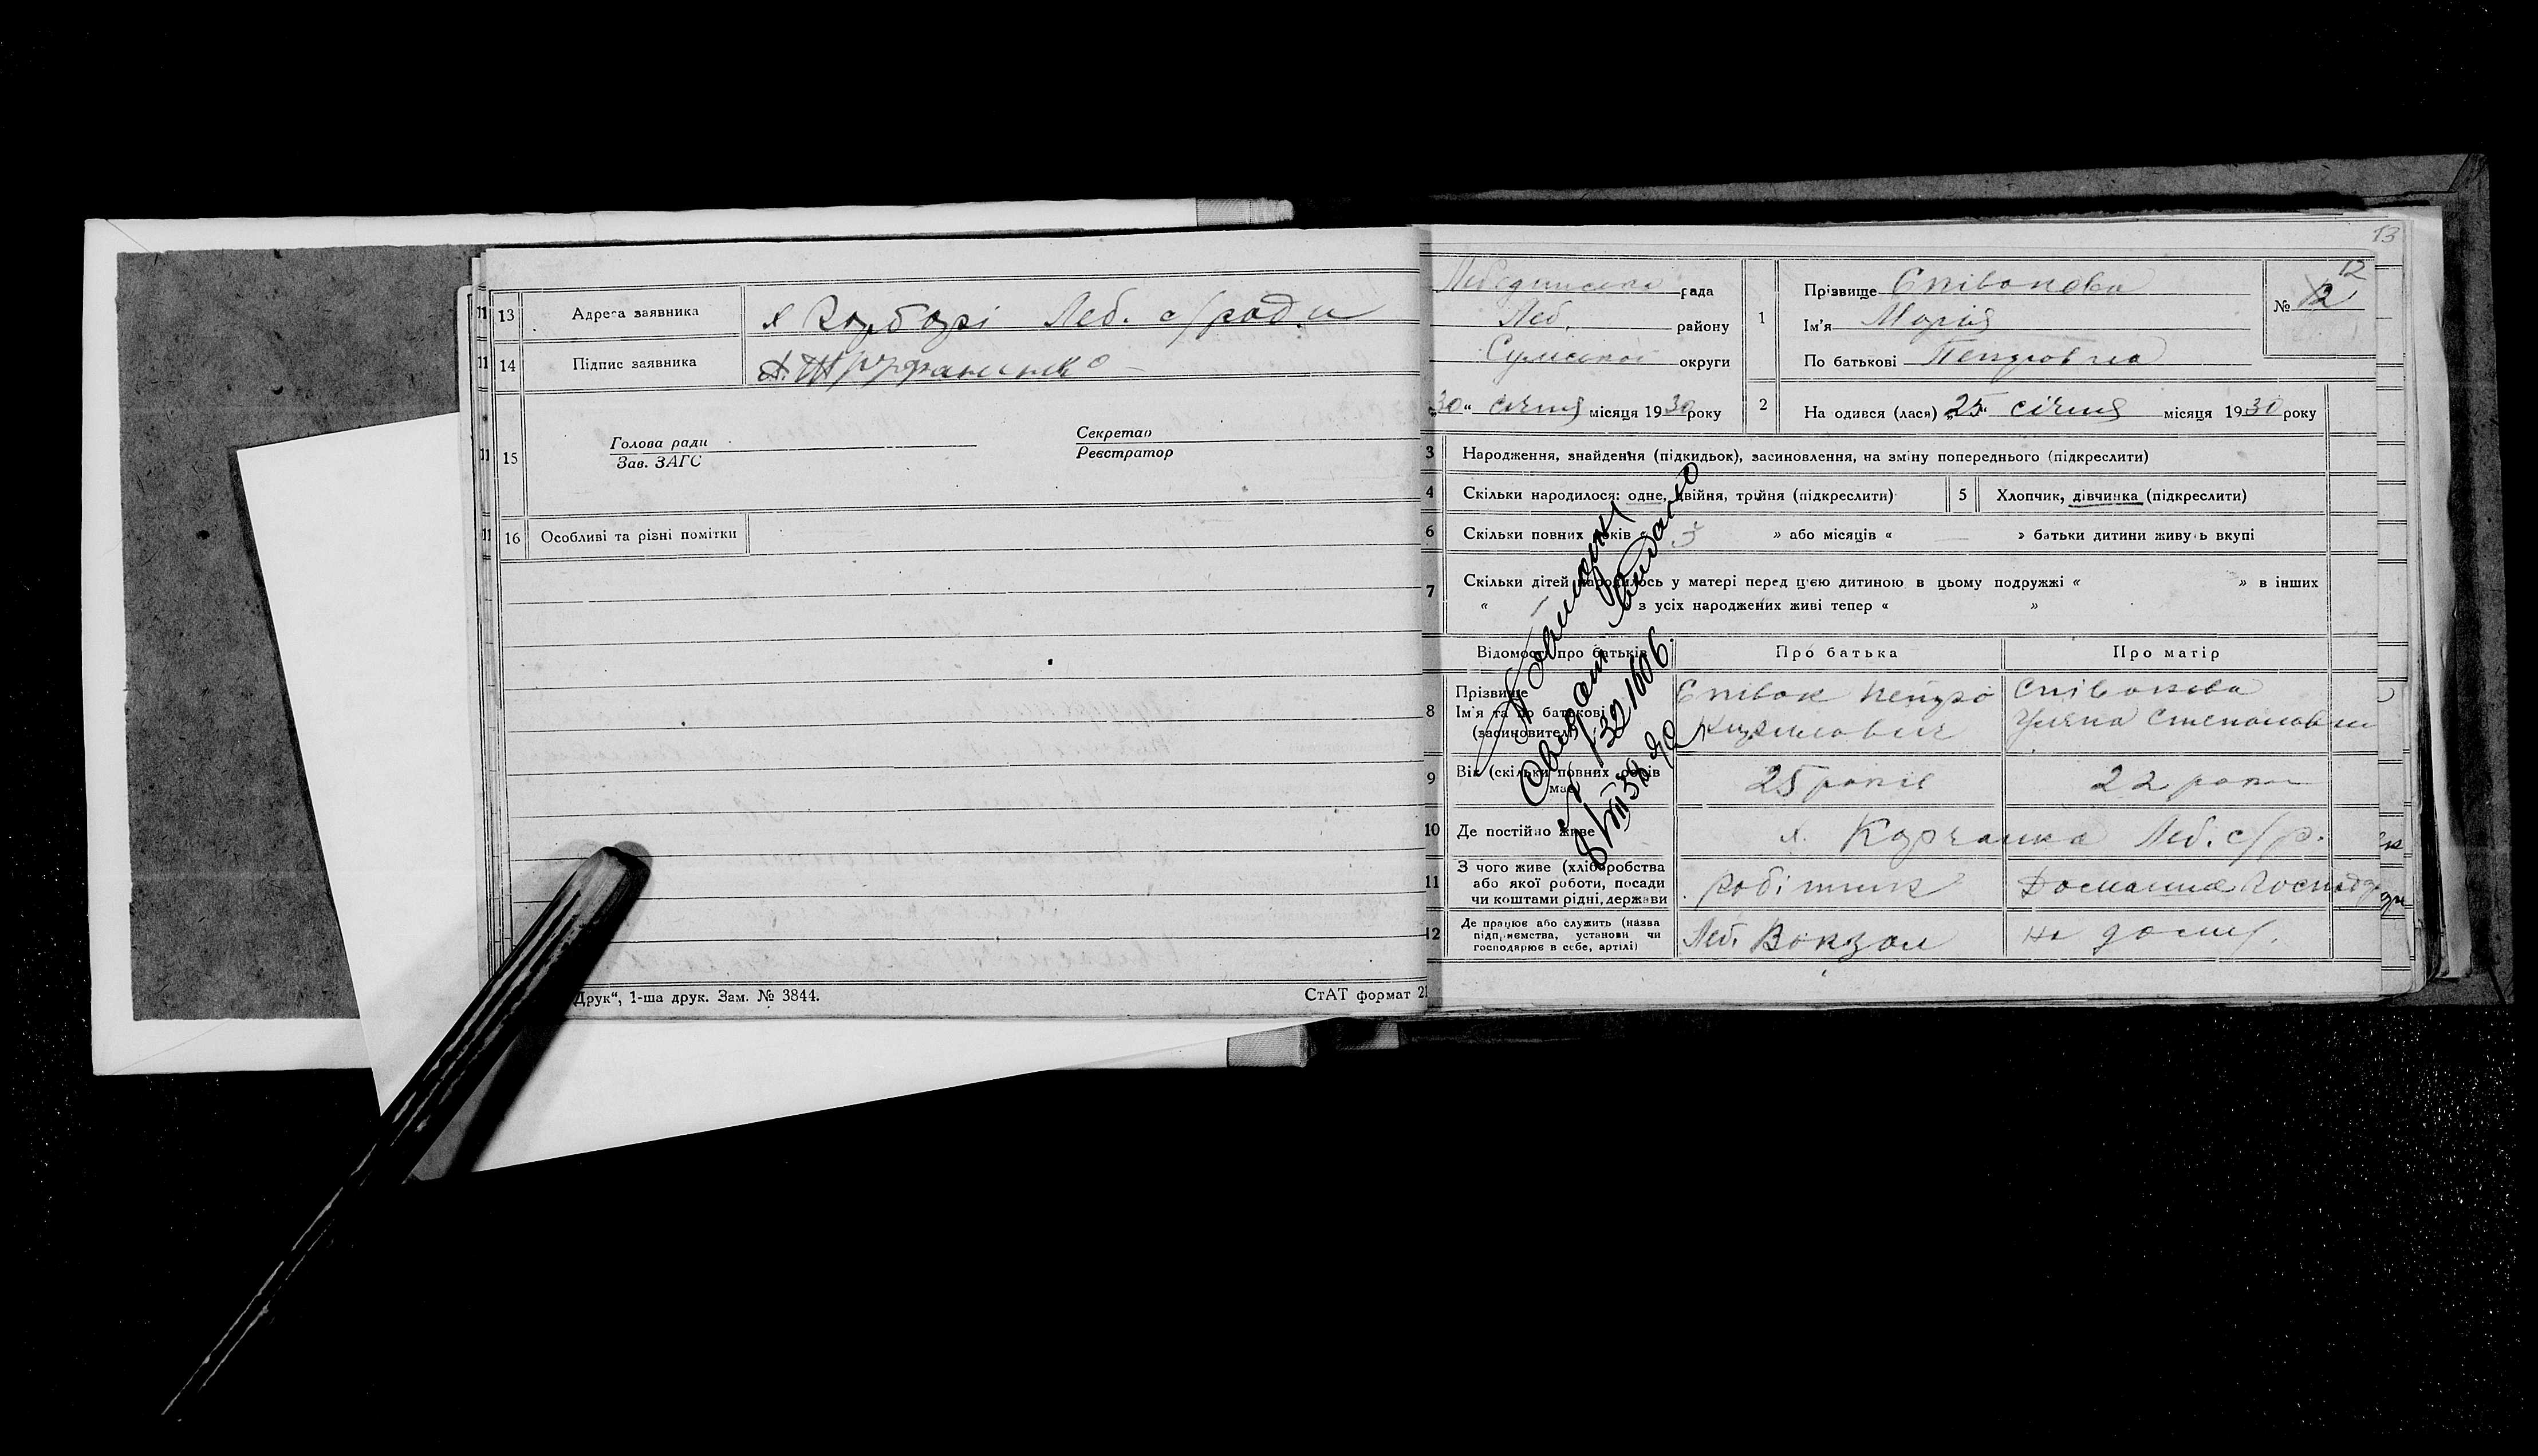 13 Адреса заявника х Розбозрі Леб. с/ради
14 Підпис заявника
15 Голова ради
Зав. ЗАГС
Секретар
Реєстратор
16 Особливі та різні помітки
Друк“, 1-ша друк. Зам. № 3844.
СтАТ формат 21
13
Лебединська рада
Леб. району
Сумської округи
„30“ січня місяця 1930 року
1 Прізвище Співакова
Ім'я Марія
По батькові Петровна
№ 12
12
2 На одився (лася) „25“ січня місяця 1930 року
3 Народження, знайдення (підкидьок), засиновлення, на зміну попереднього (підкреслити)
4 Скільки народилося: одне, двійня, трійня (підкреслити)
5 Хлопчик, дівчинка (підкреслити)
6 Скільки повних років « 3 » або місяців « — » батьки дитини живуть вкупі
7 Скільки дітей народилось у матері перед цією дитиною в цьому подружжі « » в інших
« — з усіх народжених живі тепер « »
Відомості про батьків
Про батька
Про матір
8 Прізвище
Ім'я та по батькові
(засиновителі)
Співак Петро
Кирилович
Співакова
Уляна Степановна
9 Вік (скільки повних років
має)
25 років
22 роки
10 Де постійно живе х. Корчанка Леб. с/р.
11 З чого живе (хліборобства
або якої роботи, посади
чи коштами рідні, держави
Робітник
Домашня господар
12 Де працює або служить (назва
підприємства, установи чи
господарює в себе, артілі)
Леб. Вокзал
на дому.
выдано
№ 1321606
8/VIII 38